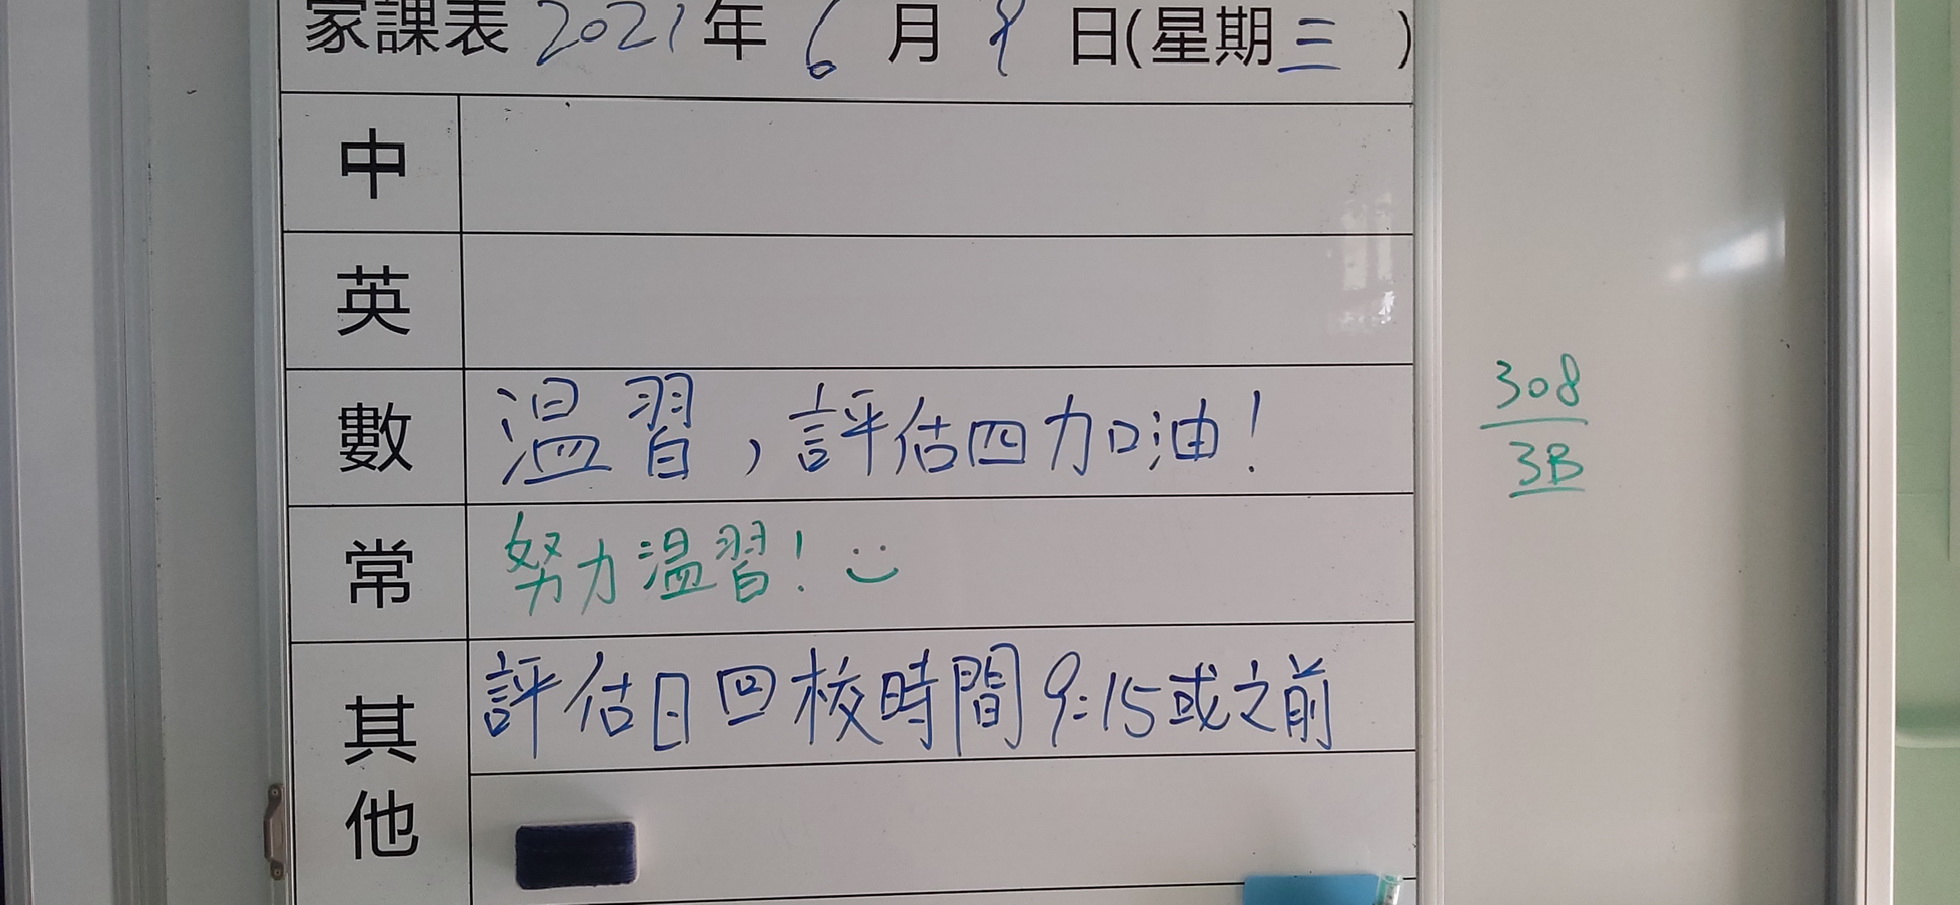 家課表 2021年 6月 9日(星期三)
中
英
數 温習，評估四加油！
常 努力温習！
其他 評估日回校時間9:15或之前
308
3B